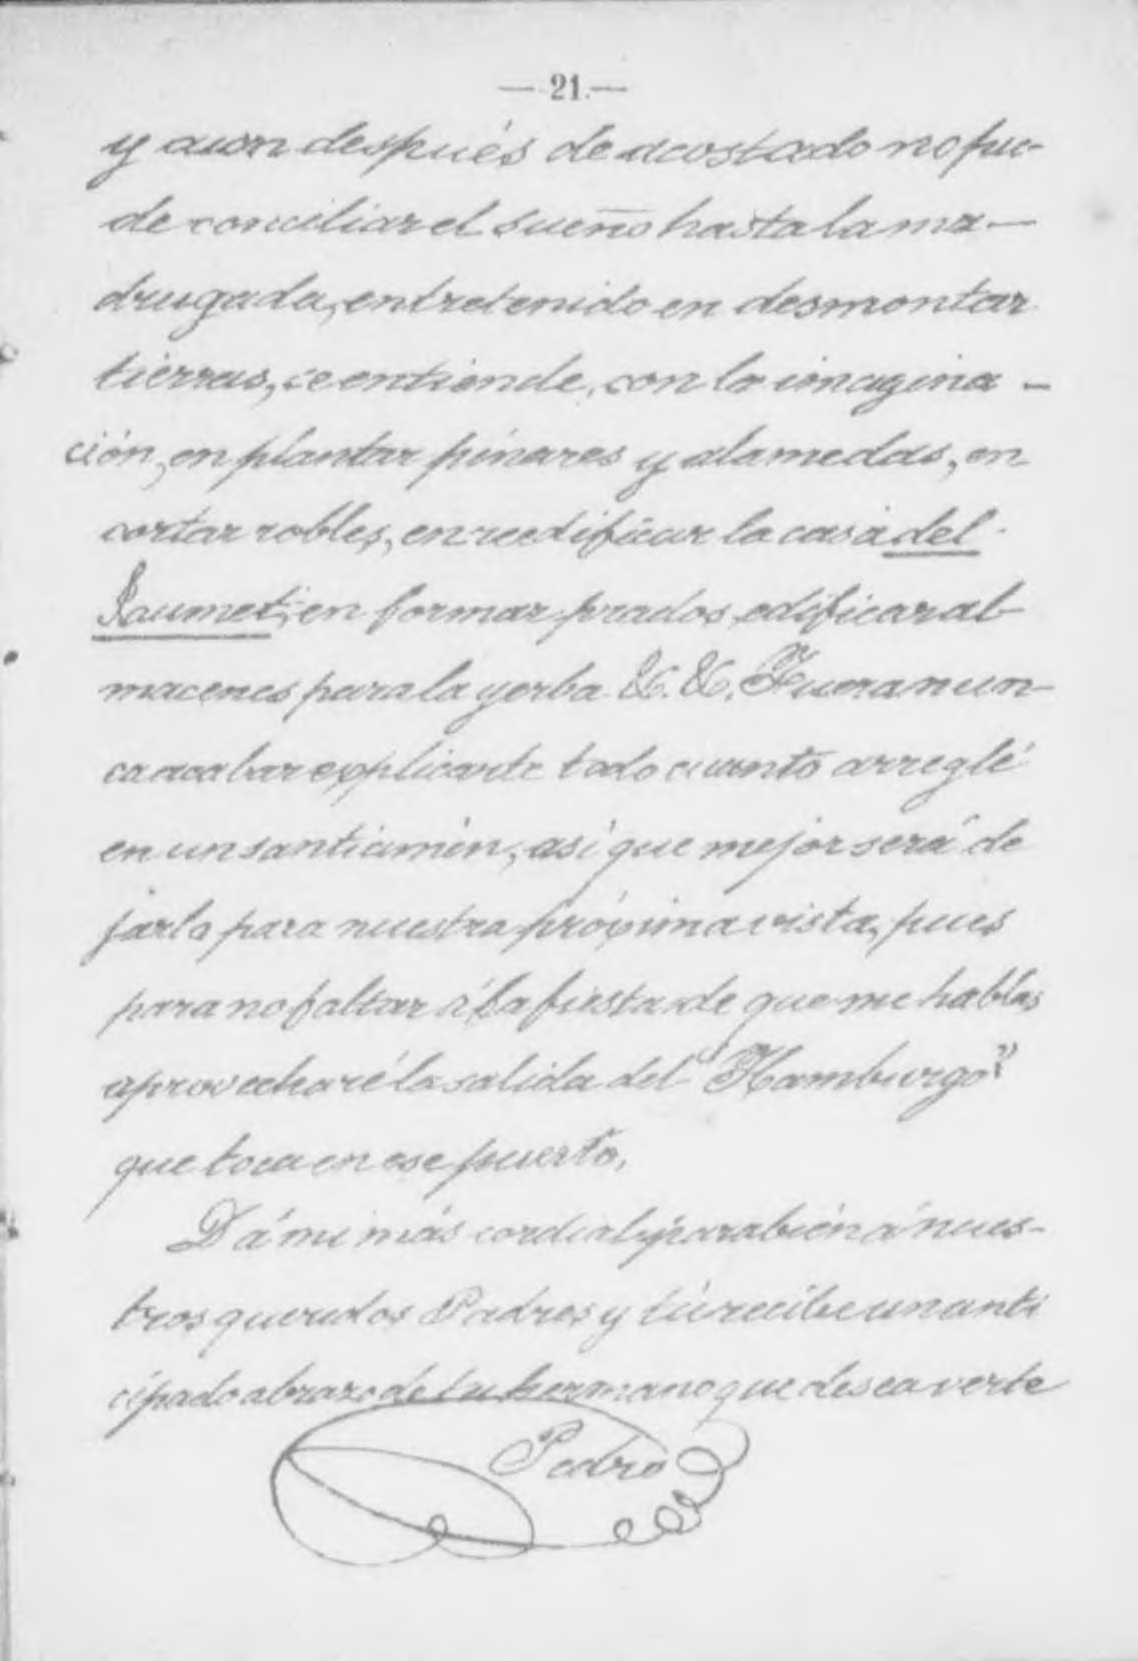 — 21 —
y aun después de acostado no pu-
de conciliar el sueño hasta la ma-
drugada, entretenido en desmontar
tierras, se entiende, con la imagina-
ción, en plantar pinares y alamedas, en
cortar robles, en reedificar la casa del
Jaumet; en formar prados, edificar al-
macenes para la yerba &. &. Fuera nun-
ca acabar explicarte todo cuanto arreglé
en un santiamén, así que mejor será de
jarlo para nuestra próxima vista, pues
para no faltar á la fiesta de que me hablas
aprovecharé la salida del "Hamburgo"
que toca en ese puerto.
Dá mi más cordial parabién á nues-
tros queridos Padres y tú recibe un anti
cipado abrazo de tu hermano que desea verte
Pedro